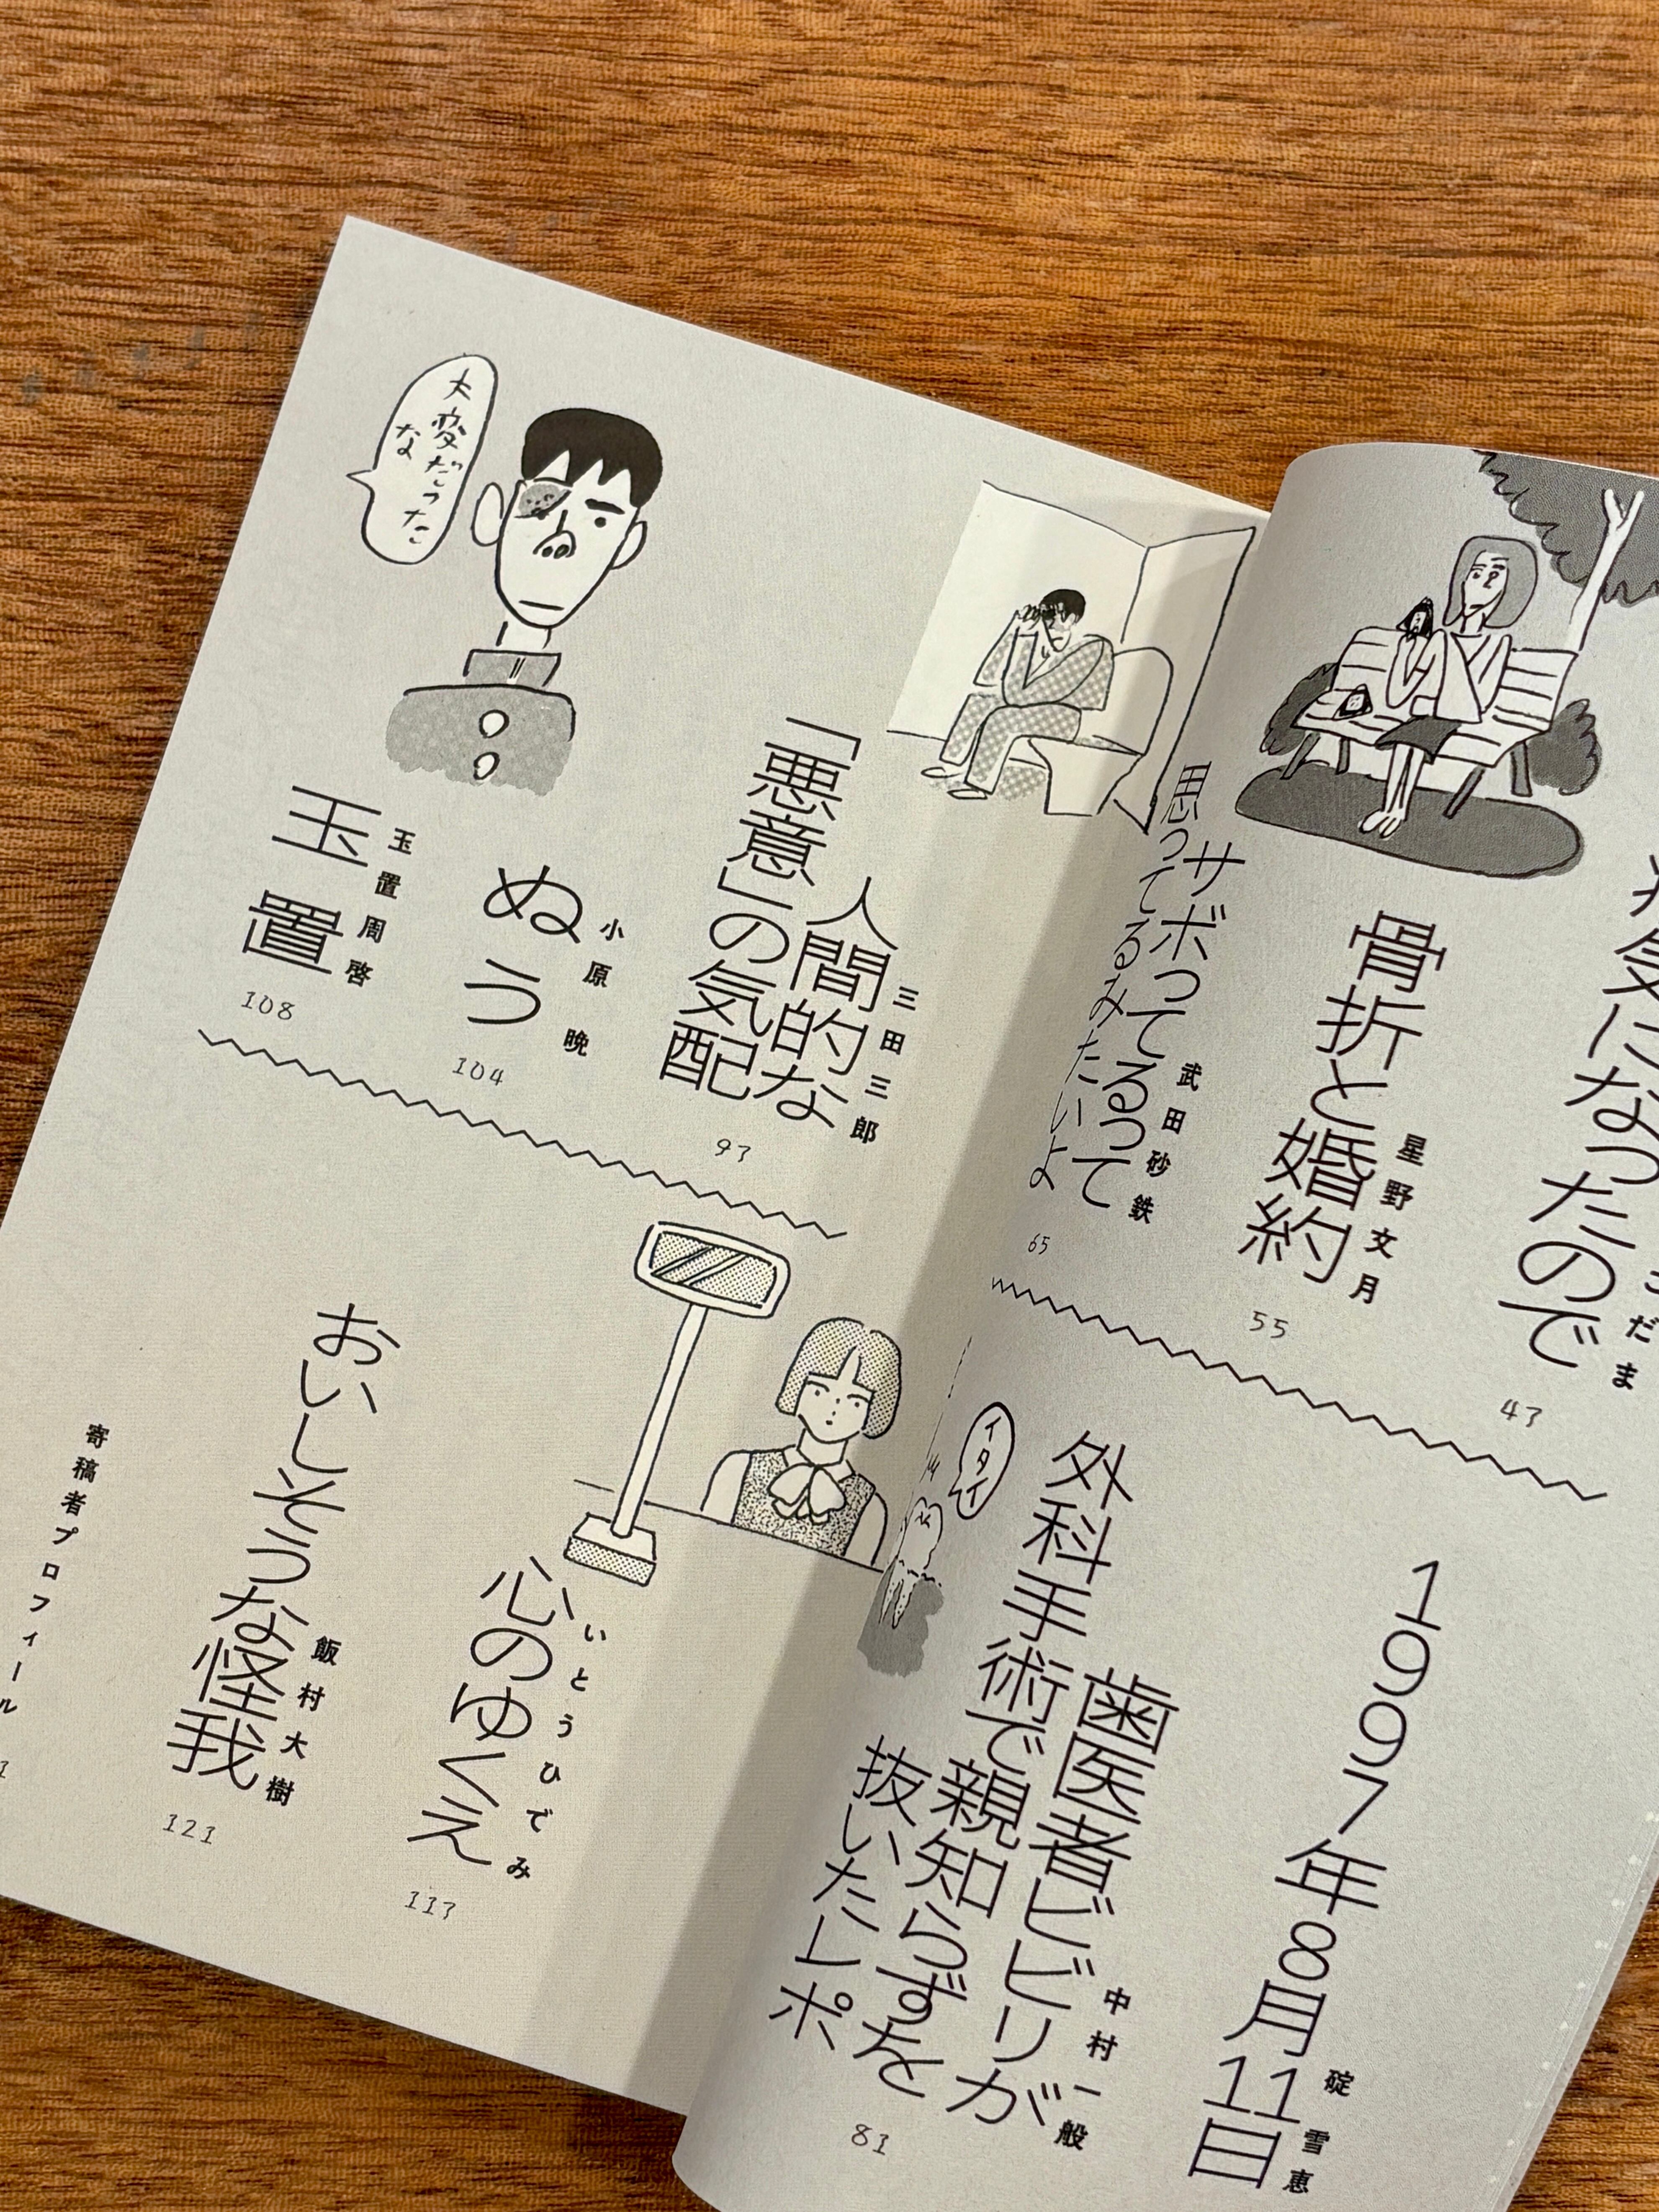 気になったので
だま
47
骨折と婚約
星野文月
55
サボってるって
思ってるみたいよ
武田砂鉄
65
1997年8月11日
碇雪恵
歯医者ビビリが
外科手術で親知らずを
抜いたレポ
中村一般
81
イタイ
人間的な
「悪意」の気配
三田三郎
97
ぬう
小原晩
104
玉置
玉置周啓
108
大変だった
な
心のゆくえ
いとうひでみ
117
おいしそうな怪我
飯村大樹
121
寄稿者プロフィール